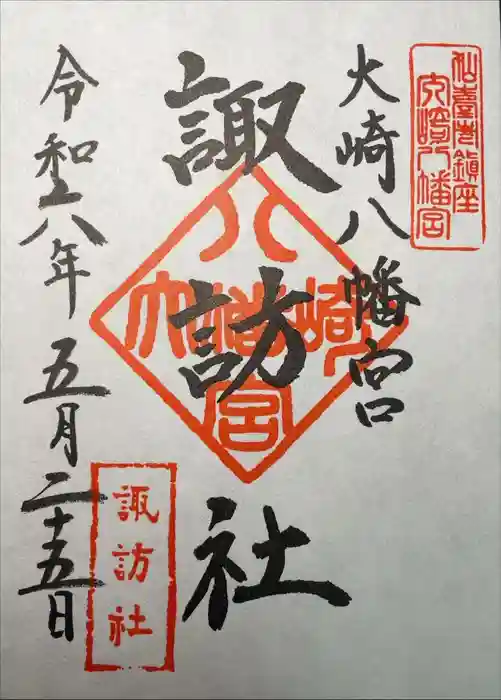 仙臺總鎮座
大崎八幡宮
大崎八幡宮
諏訪社
八幡宮
大崎
諏訪社
令和六年五月二十五日